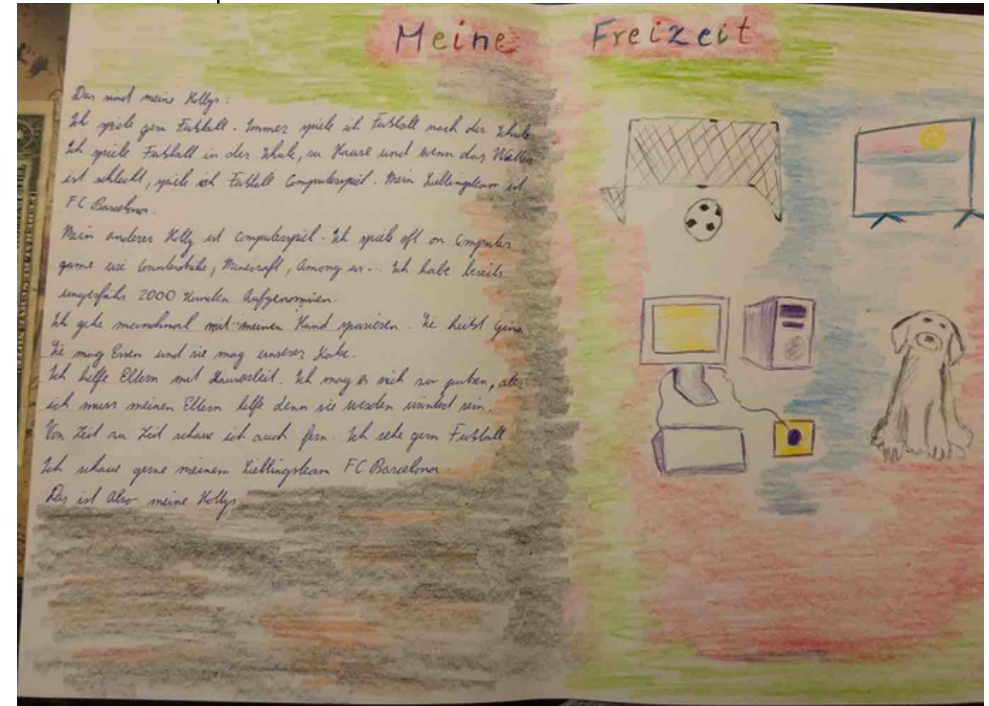 Meine Freizeit
Das sind meine Hobbys:
Ich spiele gern Fußball. Immer spiele ich Fußball nach der Schule.
Ich spiele Fußball in der Schule, zu Hause und wenn das Wetter
ist schlecht, spiele ich Fußball Computerspiel. Mein Lieblingsteam ist
FC Barcelona.
Mein anderes Hobby ist Computerspiel. Ich spiele oft on Computer
game wie Counterstrike, Minecraft, Among us... Ich habe bereits
ungefähr 2000 Stunden Aufgenommen.
Ich gehe manchmal mit meinen Hund spazieren. Sie heißt Gina
Sie mag Essen und sie mag unserer Katze.
Ich helfe Eltern mit Hausarbeit. Ich mag es nich zu putzen, aber
ich muss meinen Eltern helfe denn sie werden wündest sein.
Von Zeit zu Zeit schaue ich auch fern. Ich sehe gern Fußball
Ich schaue gerne meinem Lieblingsteam FC Barcelona.
Das ist Also meine Hobbys